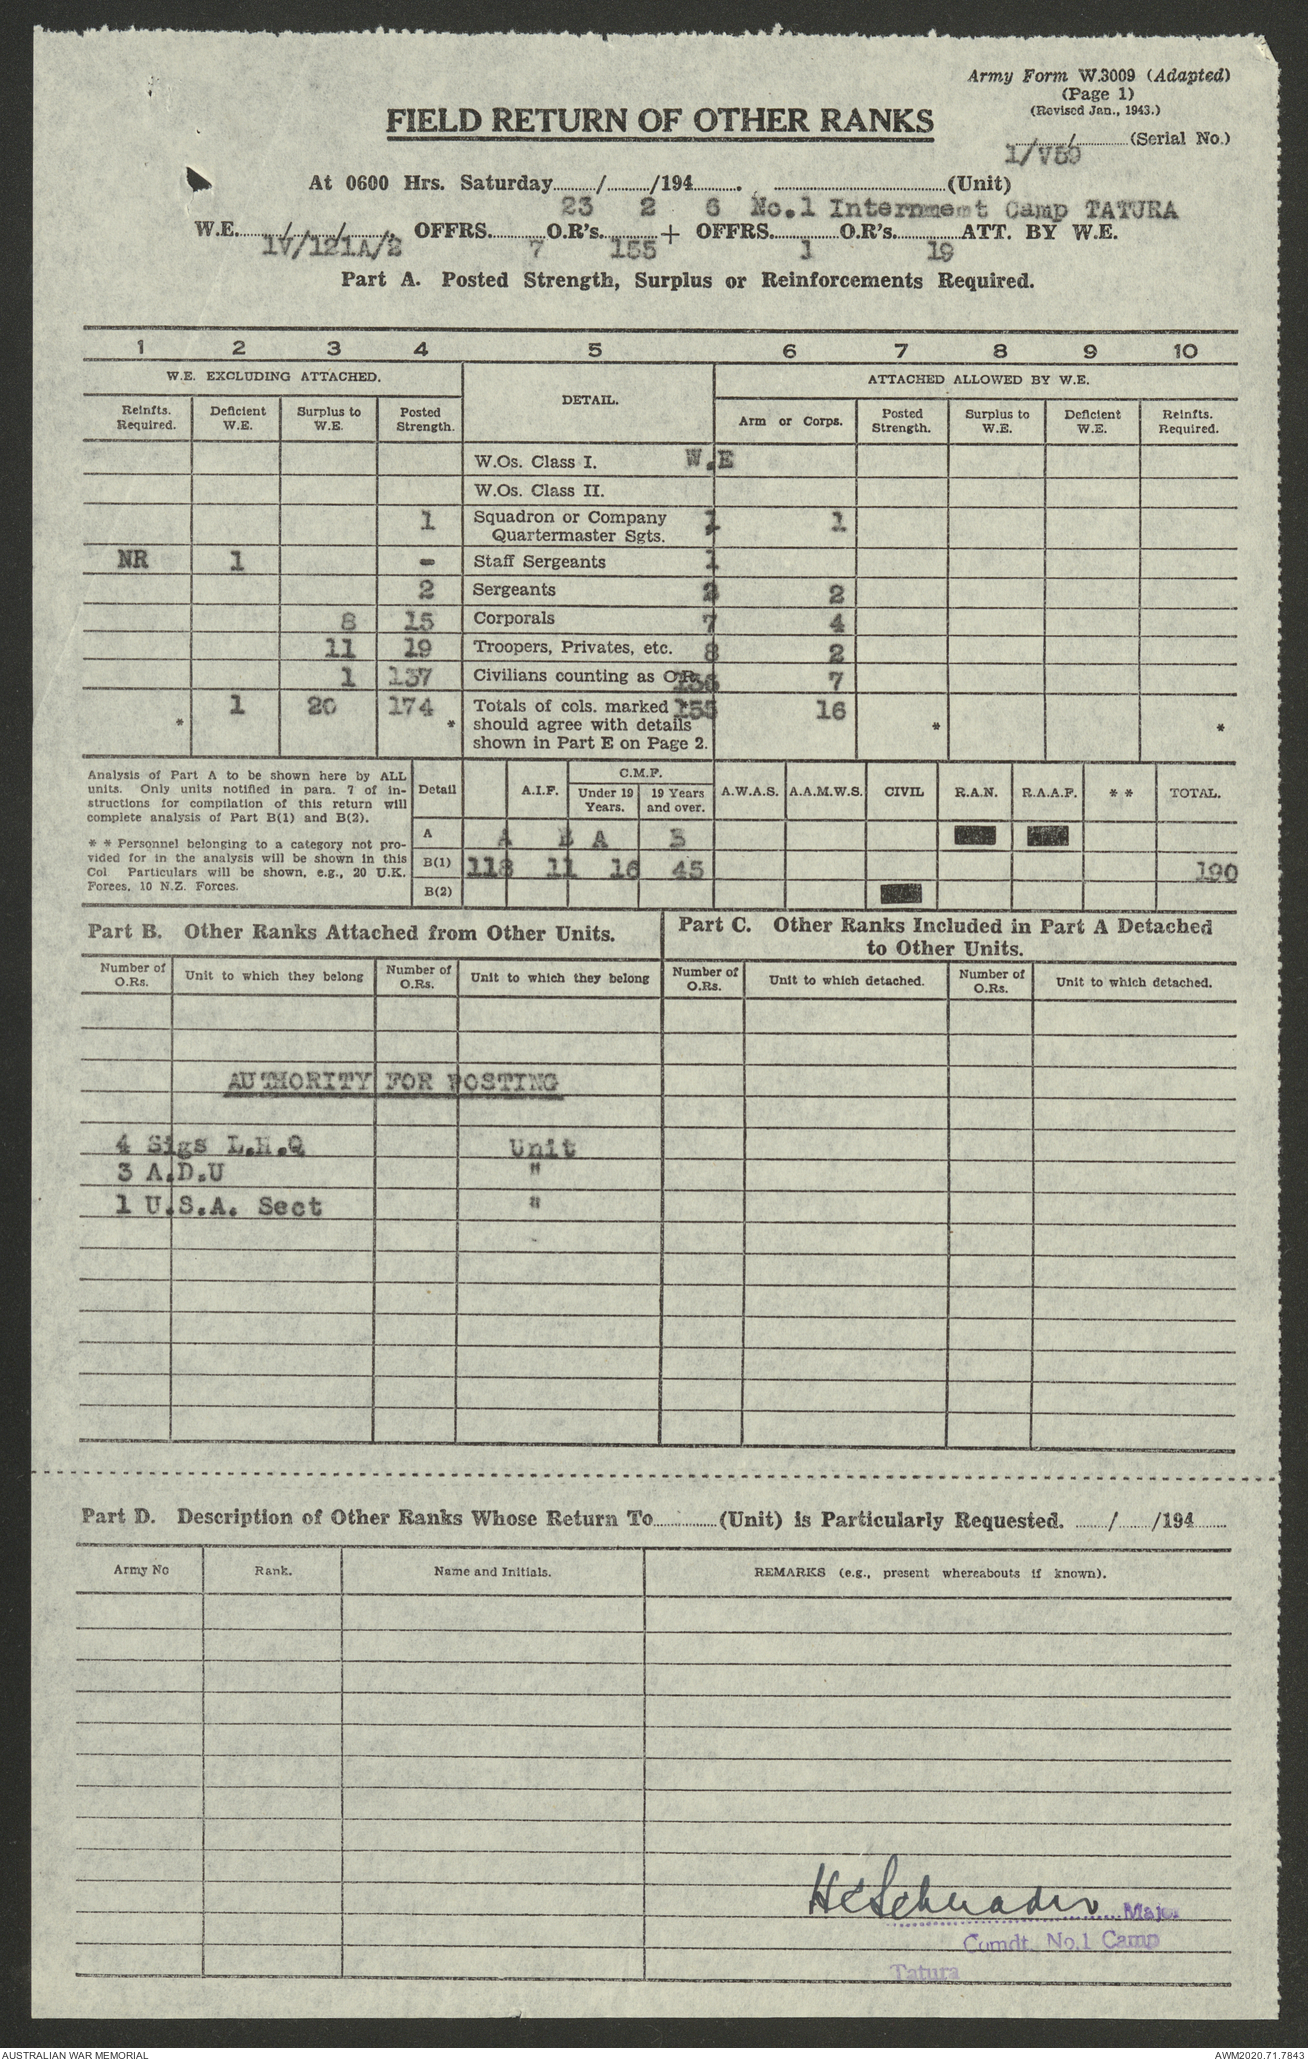 Army Form W.3009 (Adapted)
(Page 1)
(Revised Jan., 1943.)
FIELD RETURN OF OTHER RANKS
1/V59 (Serial No.)
At 0600 Hrs. Saturday 23/2/1946. No.1 Internment Camp TATURA (Unit)
W.E. IV/121A/2 OFFRS. 7 O.R's. 155 + OFFRS. 1 O.R's. 19 ATT. BY W.E.
Part A. Posted Strength, Surplus or Reinforcements Required.
1 2 3 4 5 6 7 8 9 10
W.E. EXCLUDING ATTACHED. DETAIL. ATTACHED ALLOWED BY W.E.
Reinfts. Required. Deficient W.E. Surplus to W.E. Posted Strength. Arm or Corps. Posted Strength. Surplus to W.E. Deficient W.E. Reinfts. Required.
W.Os. Class I. W.E
W.Os. Class II.
1 Squadron or Company Quartermaster Sgts. 1 1
NR 1 - Staff Sergeants 1
2 Sergeants 2
8 15 Corporals 7 4
11 19 Troopers, Privates, etc. 8 2
1 137 Civilians counting as O.R. 136 7
* 1 20 174 * Totals of cols. marked * 155 16 * *
should agree with details
shown in Part E on Page 2.
Analysis of Part A to be shown here by ALL
units. Only units notified in para. 7 of in-
structions for compilation of this return will
complete analysis of Part B(1) and B(2).
* * Personnel belonging to a category not pro-
vided for in the analysis will be shown in this
Col Particulars will be shown, e.g., 20 U.K.
Forces, 10 N.Z. Forces.
Detail A.I.F. C.M.F. Under 19 Years. 19 Years and over. A.W.A.S. A.A.M.W.S. CIVIL R.A.N. R.A.A.F. * * TOTAL.
A A B A B
B(1) 118 11 16 45 190
B(2)
Part B. Other Ranks Attached from Other Units.
Part C. Other Ranks Included in Part A Detached
to Other Units.
Number of O.Rs. Unit to which they belong Number of O.Rs. Unit to which they belong Number of O.Rs. Unit to which detached. Number of O.Rs. Unit to which detached.
AUTHORITY FOR POSTING
4 Sigs L.H.Q Unit
3 A.D.U "
1 U.S.A. Sect "
Part D. Description of Other Ranks Whose Return To (Unit) is Particularly Requested. / /194
Army No Rank. Name and Initials. REMARKS (e.g., present whereabouts if known).
Major
Comdt. No.1 Camp
Tatura
AUSTRALIAN WAR MEMORIAL
AWM2020.71.7843